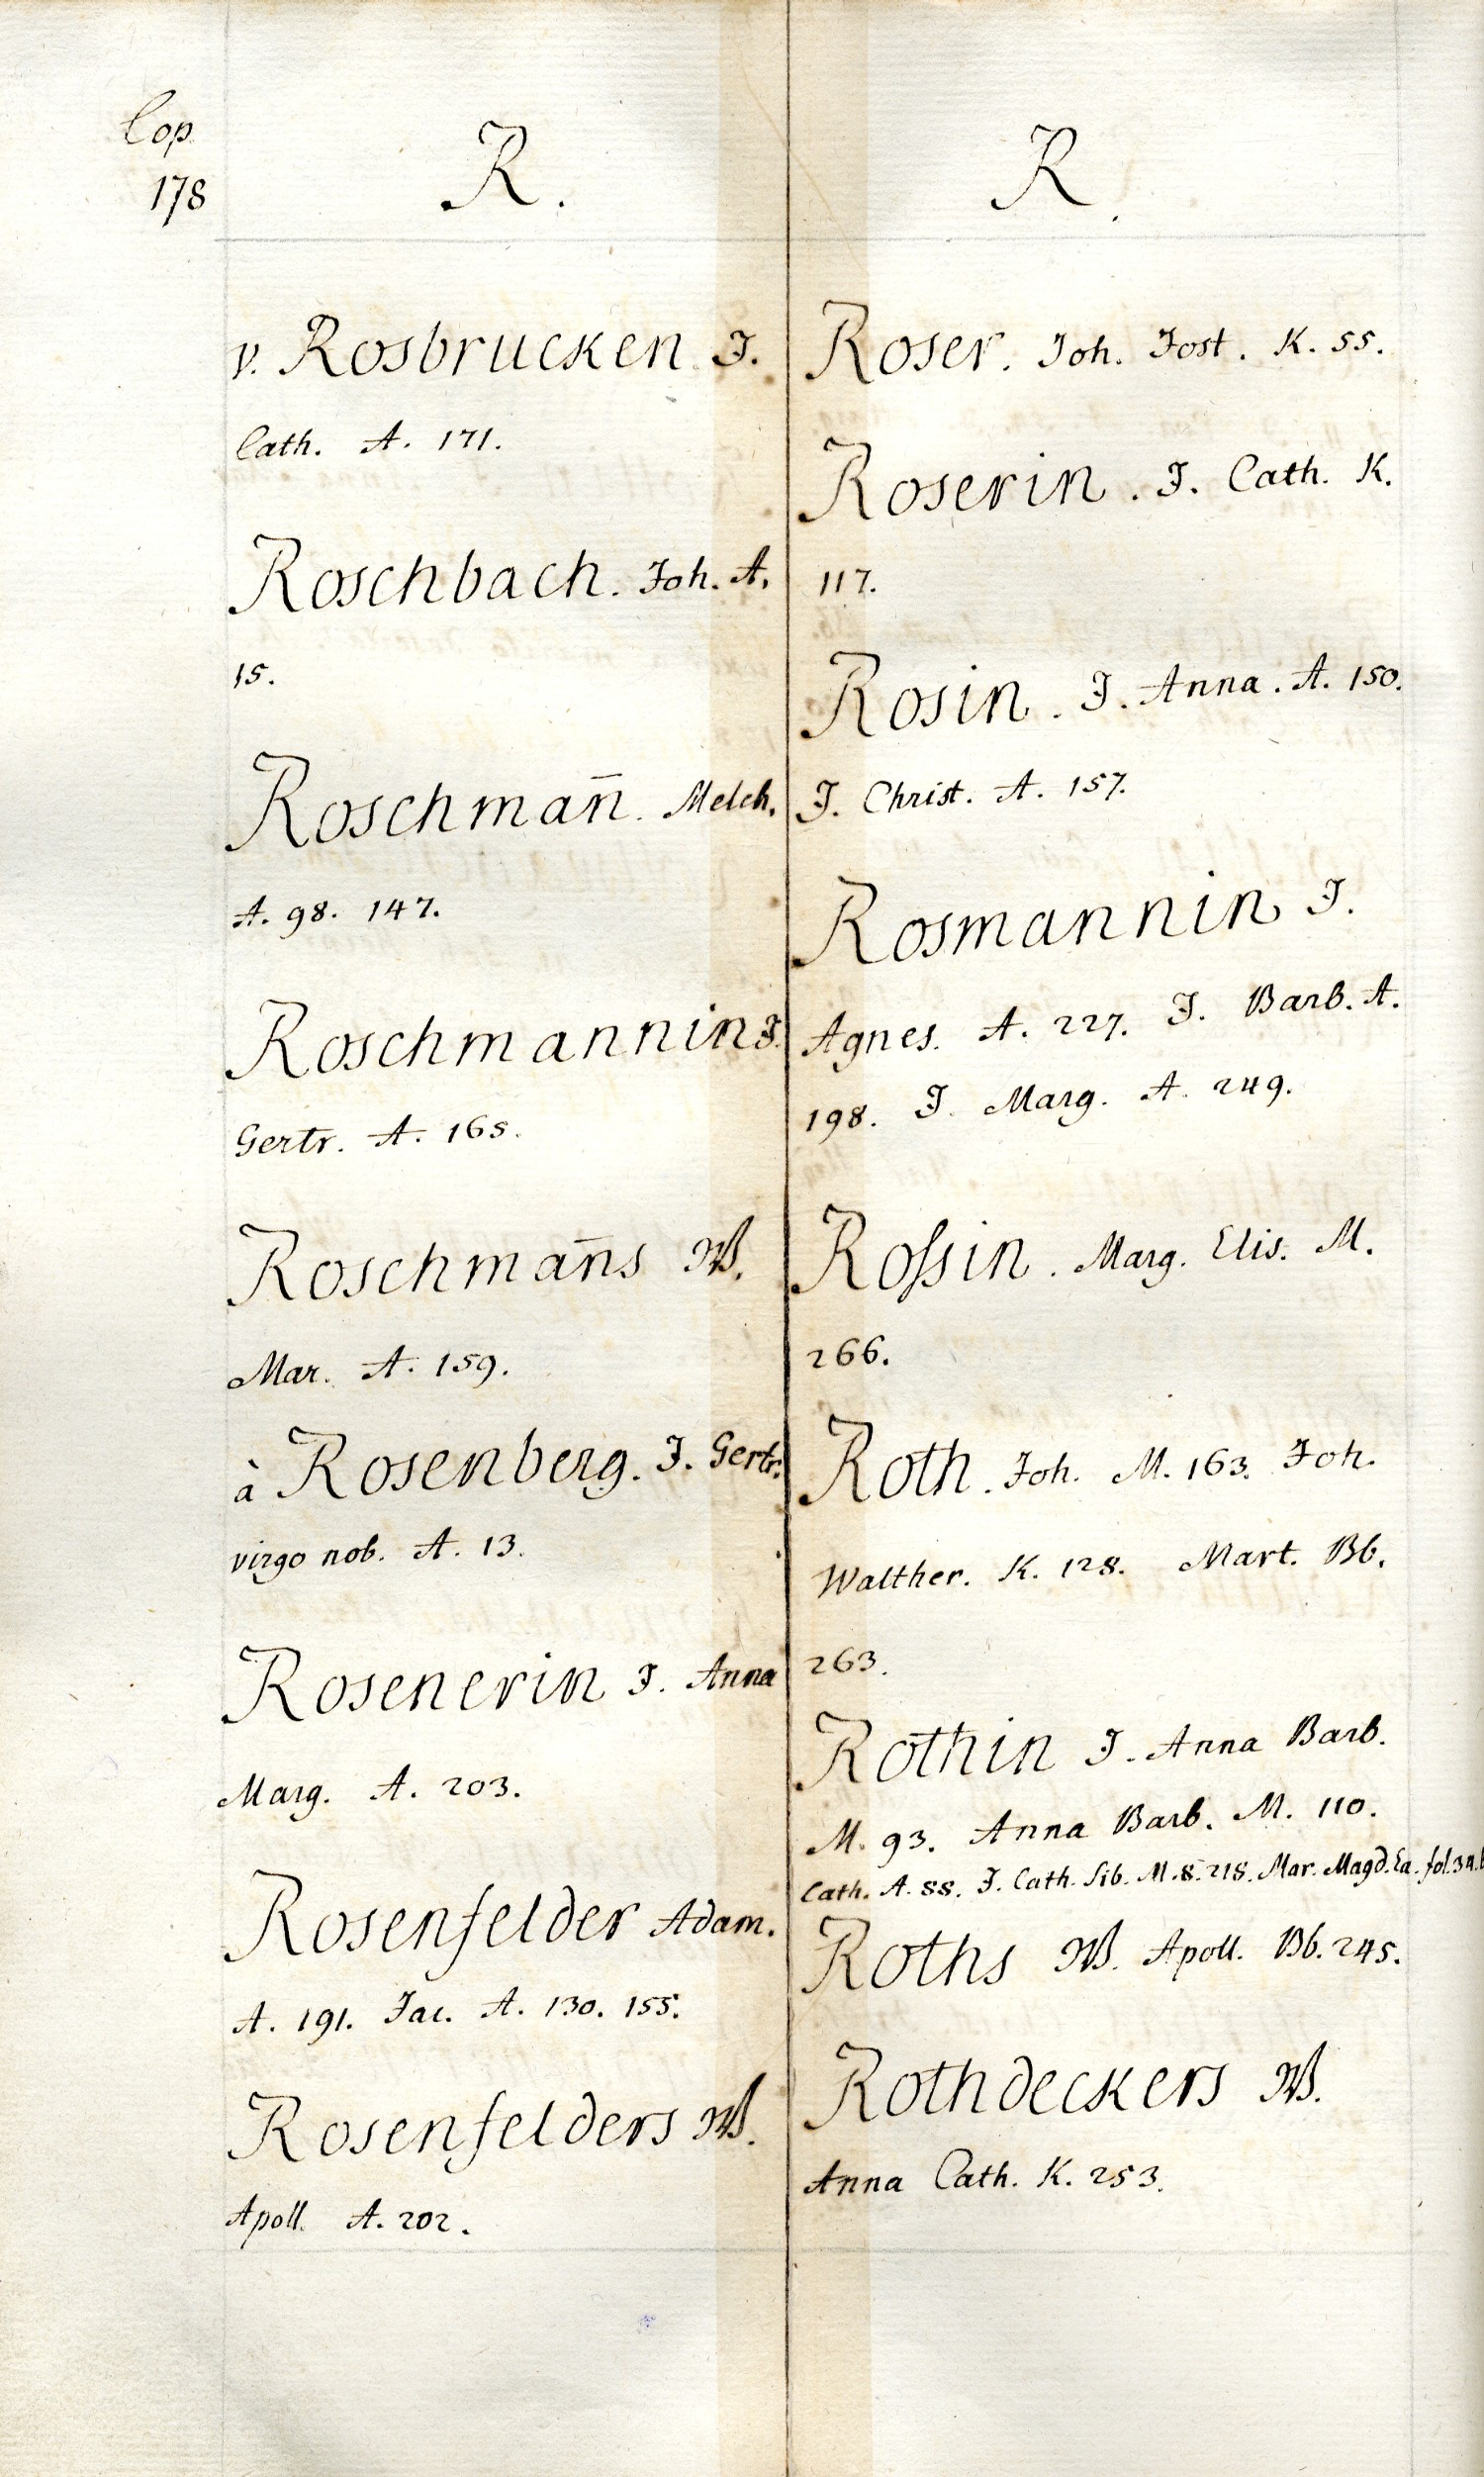 Cop.
178
R.
v. Rosbrucken. J.
Cath. A. 171.
Roschbach. Joh. A.
15.
Roschman̄. Melch.
A. 98. 147.
Roschmannin J.
Gertr. A. 165.
Roschman̄s W.
Mar. A. 159.
à Rosenberg. J. Gertr.
virgo nob. A. 13.
Rosenerin J. Anna
Marg. A. 203.
Rosenfelder Adam.
A. 191. Jac. A. 130. 155.
Rosenfelders W.
Apoll. A. 202.
R.
Roser. Joh. Jost. K. 55.
Roserin. J. Cath. K.
117.
Rosin. J. Anna. A. 150.
J. Christ. A. 157.
Rosmannin J.
Agnes. A. 227. J. Barb. A.
198. J. Marg. A. 249.
Roſsin. Marg. Elis. M.
266.
Roth. Joh. M. 163. Joh.
Walther. K. 128. Mart. Bb.
263.
Rothin J. Anna Barb.
M. 93. Anna Barb. M. 110.
Cath. A. 88. J. Cath. Sib. M. 8. 218. Mar. Magd. Ea. fol. 34. b
Roths W. Apoll. Bb. 245.
Rothdeckers W.
Anna Cath. K. 253.